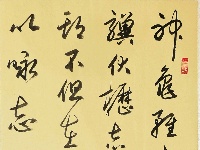 神龜雖
驥伏櫪志
期不但在
以咏志